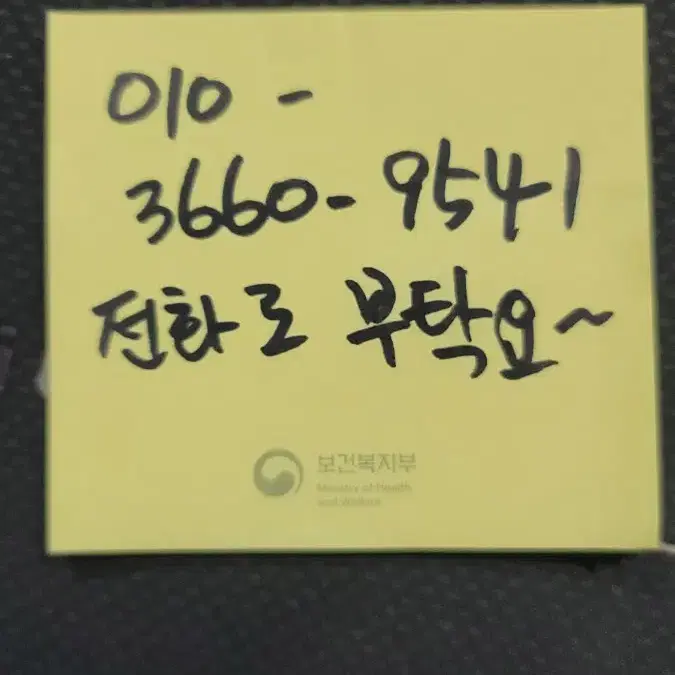 010 -
3660- 9541
전화로 부탁요~
보건복지부
Ministry of Health
and Welfare